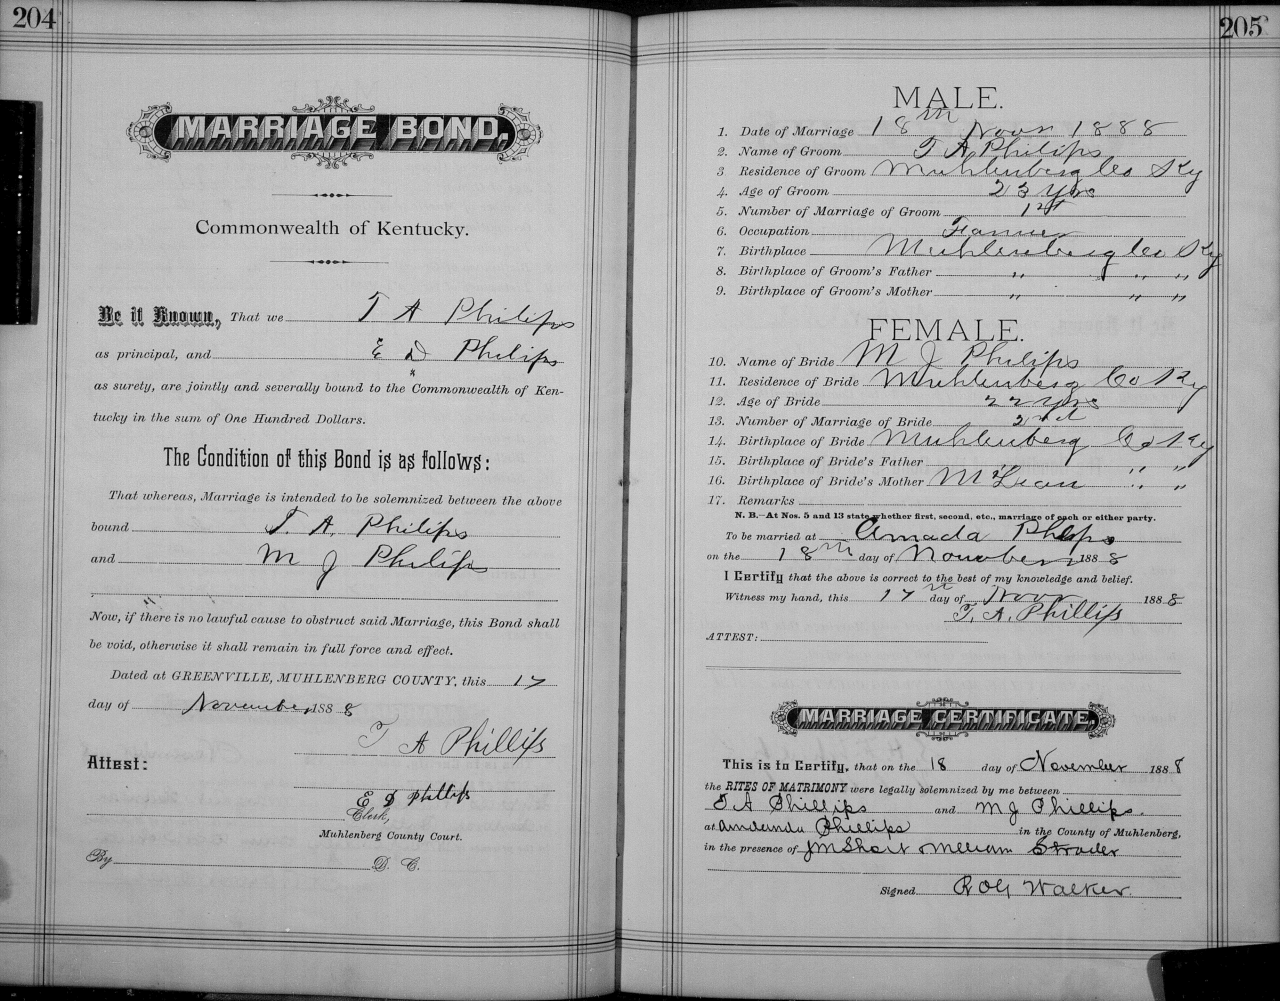 204
MARRIAGE BOND.
Commonwealth of Kentucky.
Be it Known, That we T A Philips
as principal, and E D Philips
as surety, are jointly and severally bound to the Commonwealth of Ken-
tucky in the sum of One Hundred Dollars.
The Condition of this Bond is as follows:
That whereas, Marriage is intended to be solemnized between the above
bound T. A. Philips
and M J Philips
Now, if there is no lawful cause to obstruct said Marriage, this Bond shall
be void, otherwise it shall remain in full force and effect.
Dated at GREENVILLE, MUHLENBERG COUNTY, this 17
day of November 188 8
T A Phillips
Attest:
E D Phillips
Clerk,
Muhlenberg County Court.
By D. C.
205
MALE.
1. Date of Marriage 18th 1888
2. Name of Groom T A Philips
3 Residence of Groom Muhlenberg Co Ky
4. Age of Groom 23 yrs
5. Number of Marriage of Groom 1st
6. Occupation Farmer
7. Birthplace Muhlenberg Co Ky
8. Birthplace of Groom's Father " " "
9. Birthplace of Groom's Mother " " "
FEMALE.
10. Name of Bride M J Philips
11. Residence of Bride Muhlenberg Co Ky
12. Age of Bride 22 yrs
13. Number of Marriage of Bride 2nd
14. Birthplace of Bride Muhlenberg Co Ky
15. Birthplace of Bride's Father " " "
16. Birthplace of Bride's Mother McLean " "
17. Remarks
N. B.—At Nos. 5 and 13 state whether first, second, etc., marriage of each or either party.
To be married at Amada
on the 18th day of November 188 8
I Certify that the above is correct to the best of my knowledge and belief.
Witness my hand, this 17th day of Nov 188 8
T. A. Phillips
ATTEST:
MARRIAGE CERTIFICATE.
This is to Certify, that on the 18 day of November 188 8
the RITES OF MATRIMONY were legally solemnized by me between
T A Phillips and M J Phillips.
at Phillips in the County of Muhlenberg,
in the presence of J M Short William Strader
Signed Walker